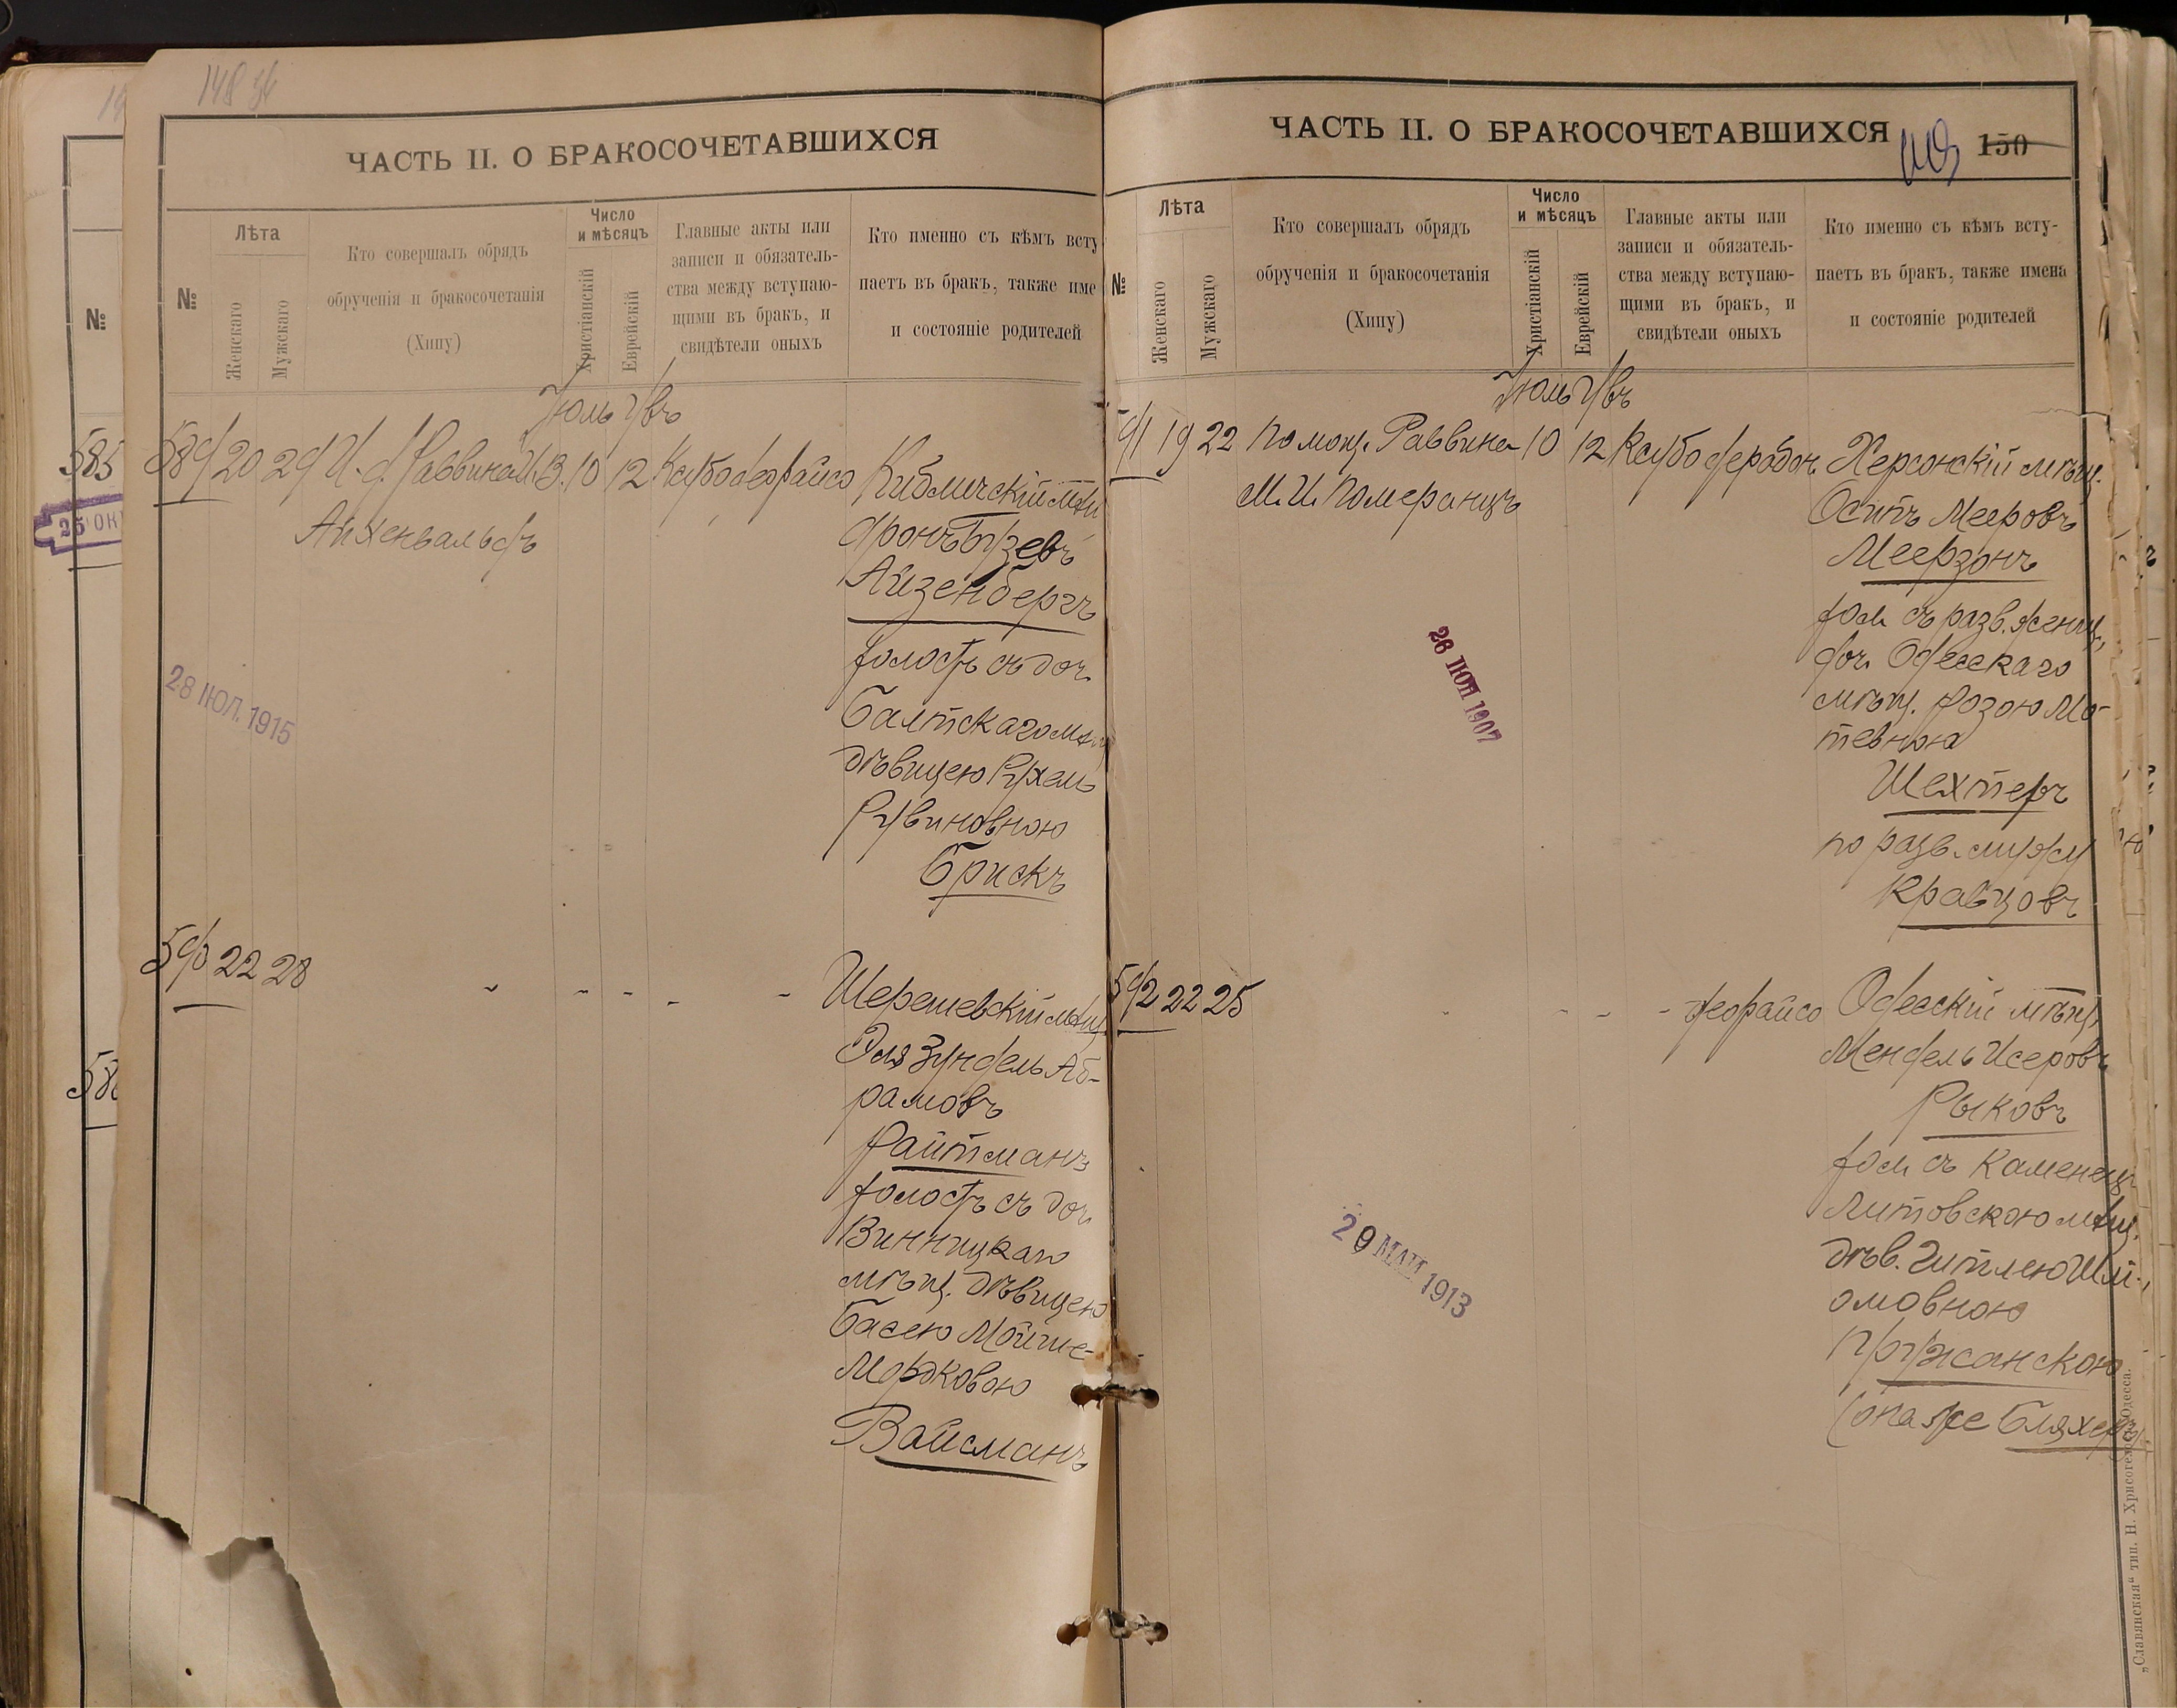 148 зв
ЧАСТЬ II. О БРАКОСОЧЕТАВШИХСЯ
№
Лѣта
Женскаго
Мужскаго
Кто совершалъ обрядъ
обрученія и бракосочетанія
(Хипу)
Число
и мѣсяцъ
Христіанскій
Еврейскій
Главные акты или
записи и обязатель-
ства между вступаю-
щими въ бракъ, и
свидѣтели оныхъ
Кто именно съ кѣмъ всту
паетъ въ бракъ, также име
и состояніе родителей
Іюль
589 20 29 И. д. Раввина 10 12
Айхенвальдъ
Айзенбергъ
холостъ съ доч.
Балтскаго мѣщ
дѣвицею Рухель
Рувиновною
Брискъ
28 ІЮЛ. 1915
590 22 28
Шерешевскій мѣщ.
Эля Зундель Аб-
рамовъ
Райтманъ
холостъ съ доч.
Винницкаго
мѣщ. дѣвицею
Басею Мойше-
Морковою
Вайсманъ
№
585
25 ОК
ЧАСТЬ II. О БРАКОСОЧЕТАВШИХСЯ
150
№
Лѣта
Женскаго
Мужскаго
Кто совершалъ обрядъ
обрученія и бракосочетанія
(Хипу)
Число
и мѣсяцъ
Христіанскій
Еврейскій
Главные акты или
записи и обязатель-
ства между вступаю-
щими въ бракъ, и
свидѣтели оныхъ
Кто именно съ кѣмъ всту-
паетъ въ бракъ, также имена
и состояніе родителей
Іюль
19 22 Помощ. Раввина 10 12 Херсонскій мѣщ.
М. И. Померанцъ
Осипъ Мееровъ
Меерзонъ
хол. съ разв. женщ.,
доч. Одесскаго
мѣщ. Розою Мо-
тевною
Шехтеръ
по разв. мужу
Кравцовъ
592 22 25 Одесскій мѣщ.
Мендель Исеровъ
Рыковъ
хол. съ Каменец-
Литовскою мѣщ.
дѣв. Гитлею Шлі-
омовною
Пружанскою
(она же Бляхеръ).
29 МАЙ 1913
„Славянская“ тип. Н. Хрисогелосъ, Одесса.